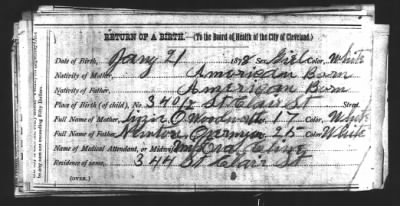 RETURN OF A BIRTH.—(To the Board of Health of the City of Cleveland.)
Date of Birth, Jany 21 1878 Sex, Girl Color, White
Nativity of Mother, American Born
Nativity of Father, American Born
Place of Birth (of child), No. 340 St Clair St Street
Full Name of Mother, Lizzie O Woodworth 17 Color, White
Full Name of Father, Newton 25 Color White
Name of Medical Attendant, or Midwife, Mrs Dra
Residence of same, 344 St Clair St
(OVER.)